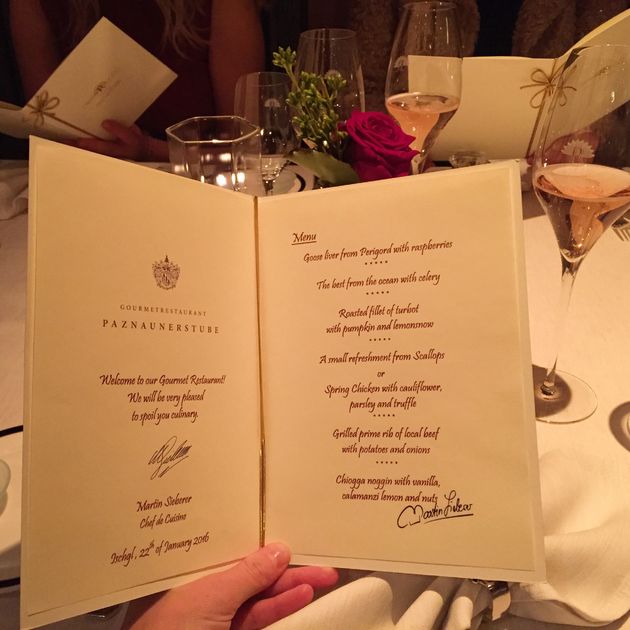 GOURMETRESTAURANT
PAZNAUNERSTUBE
Welcome to our Gourmet Restaurant!
We will be very pleased
to spoil you culinary.
Martin Sieberer
Chef de Cuisine
Ischgl, 22th of January 2016
Menu
Goose liver from Perigord with raspberries
*****
The best from the ocean with celery
*****
Roasted fillet of turbot
with pumpkin and lemonsnow
*****
A small refreshment from Scallops
or
Spring Chicken with cauliflower,
parsley and truffle
*****
Grilled prime rib of local beef
with potatoes and onions
*****
Chiogga noggin with vanilla,
calamanzi lemon and nuts